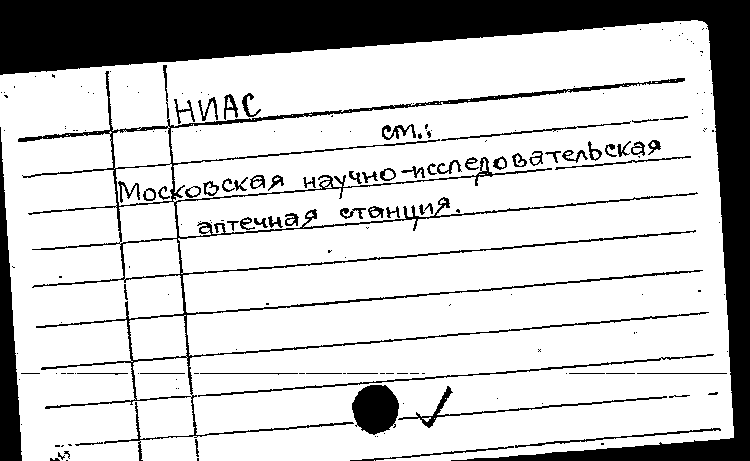 НИАС
см.:
Московская научно-исследовательская
аптечная станция.